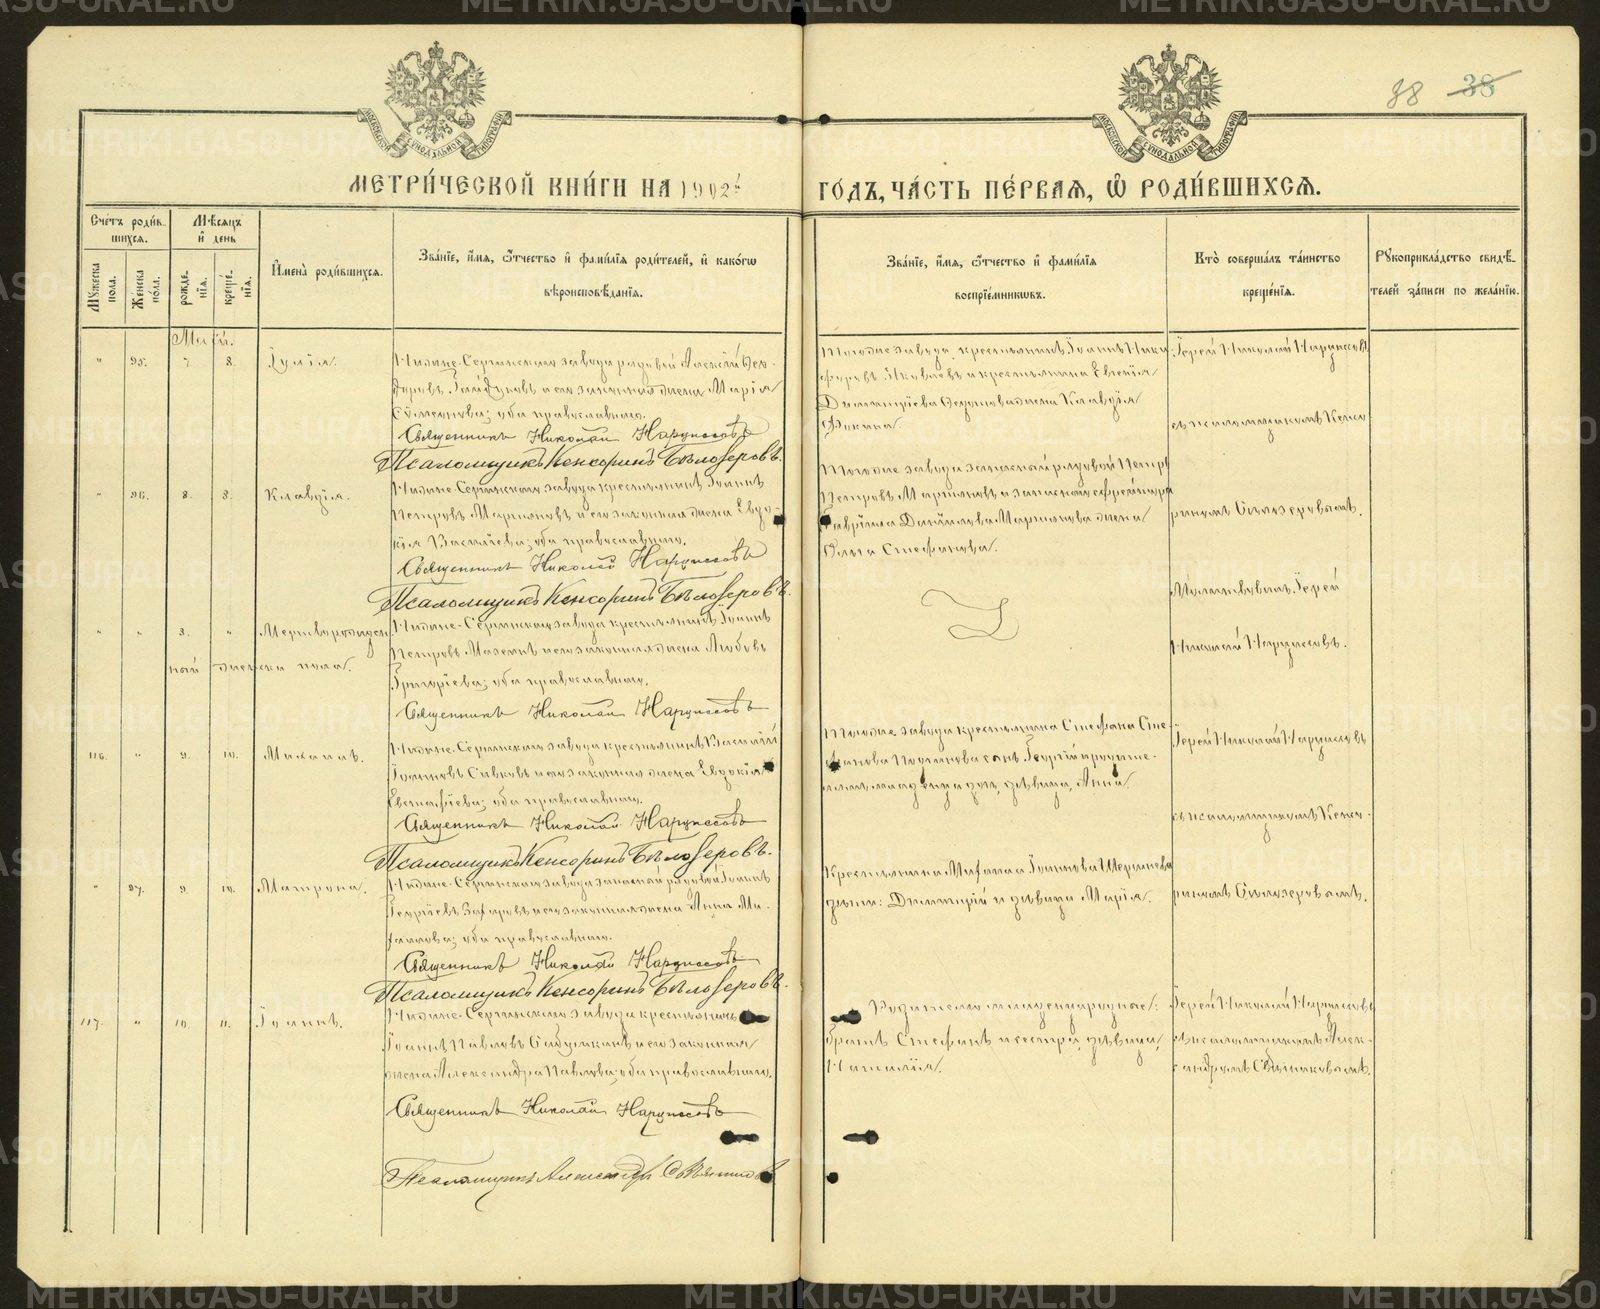 88 38
МОСКОВСКОЙ СѴНОДАЛЬНОЙ ТИПОГРАФІИ
МОСКОВСКОЙ СѴНОДАЛЬНОЙ ТИПОГРАФІИ
МЕТРИ́ЧЕСКОЙ КНИ́ГИ НА 1902 й
ГО́ДЪ, ЧА́СТЬ ПЕ́РВАЯ, Ѡ РОДИ́ВШИХСЯ.
Сче́тъ роди́в-
шихся.
Мꙋ́жеска по́ла.
Же́нска по́ла.
Мѣ́сяцъ
и҆ день
рожде́нїя.
креще́нїя.
И҆мена̀ роди́вшихся.
Зва́нїе, и҆́мя, ѻ҆́тчество и҆ фами́лїя роди́телей, и҆ како́гѡ
вѣроисповѣ́данїя.
Зва́нїе, и҆́мя, ѻ҆́тчество и҆ фами́лїя
воспрїе́мникѡвъ.
Кто̀ соверша́лъ та́инство
креще́нїя.
Рꙋкоприкла́дство свидѣ́-
телей за́писи по жела́нїю.
Май.
" 95. 7. 8. Іулія.
Нижне-Сергинскаго завода рядовой Алексѣй Ѳео-
доровъ Гайдуковъ и его законная жена Марія
Сѵмеонова; оба православные.
Священникъ Николай Нарциссовъ
Псаломщикъ Кенсоринъ Бѣлозеровъ.
Того же завода крестьянинъ Іоаннъ Ники-
форовъ Яковлевъ и крестьянина Евгенія
Димитріева жена Клавдія
Фокина.
Іерей Николай Нарциссовъ
съ псаломщикомъ Кенсо-
" 96. 8. 8. Клавдія.
Нижне-Сергинскаго завода крестьянинъ Іоаннъ
Петровъ Мартюковъ и его законная жена Евдо-
кія Васильева; оба православные.
Священникъ Николай Нарциссовъ
Псаломщикъ Кенсоринъ Бѣлозеровъ.
Того же завода запасный рядовой Петръ
Петровъ Мартюковъ и запаснаго ефрейтора
Гавріила Даніилова Мартюкова жена
Ольга Стефанова.
риномъ Бѣлозеровымъ.
" " 3. " Мертворожден-
ный женска пола.
Нижне-Сергинскаго завода крестьянинъ Іоаннъ
Петровъ и его законная жена Любовь
Григоріева; оба православные.
Священникъ Николай Нарциссовъ
Молитвовалъ Іерей
Николай Нарциссовъ.
116. " 9. 10. Михаилъ.
Нижне-Сергинскаго завода крестьянинъ Василій
Іоанновъ Сивковъ и его законная жена Евдокія
Евстафіева; оба православные.
Священникъ Николай Нарциссовъ
Псаломщикъ Кенсоринъ Бѣлозеровъ.
Того же завода крестьянина Стефана Сте-
фанова сынъ Георгій
дѣвица Анна.
Іерей Николай Нарциссовъ
съ псаломщикомъ Кенсо-
" 97. 9. 10. Матрона.
Нижне-Сергинскаго завода запасной рядовой Іоаннъ
Георгіевъ Захаровъ и его законная жена Анна
оба православные.
Священникъ Николай Нарциссовъ
Псаломщикъ Кенсоринъ Бѣлозеровъ.
Крестьянина Іоаннова
дѣти: Димитрій и дѣвица Марія.
риномъ Бѣлозеровымъ.
117. " 10. 11. Іоаннъ.
Нижне-Сергинскаго завода крестьянинъ
Іоаннъ Павловъ и его законная
жена Александра Павлова; оба православные.
Священникъ Николай Нарциссовъ
Псаломщикъ Александръ
братъ Стефанъ и сестра, дѣвица,
Наталія.
Іерей Николай Нарциссовъ
съ псаломщикомъ Алек-
сандромъ
METRIKI.GASO-URAL.RU